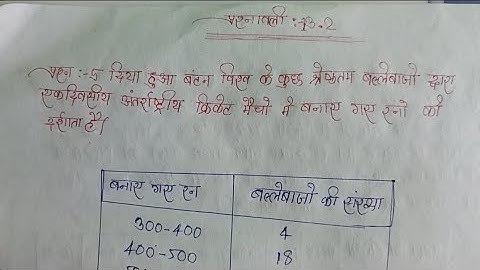 प्रश्नावली :- 13.2
प्रश्न :- 5 दिया हुआ बंटन विश्व के कुछ श्रेष्ठतम बल्लेबाजों द्वारा
एकदिवसीय अंतर्राष्ट्रीय क्रिकेट मैचों में बनाए गए रनों को
दर्शाता है।
बनाए गए रन बल्लेबाजों की संख्या
300-400 4
400-500 18